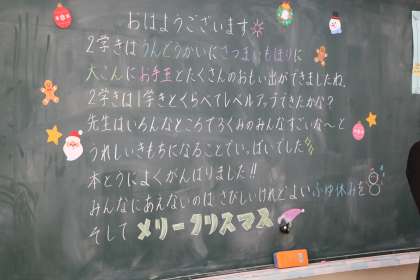 おはようございます
2学きはうんどうかいにさつまいもほりに
大こんにお手玉とたくさんのおもい出ができましたね。
2学きは1学きとくらべてレベルアップできたかな?
先生はいろんなところでろくみのみんなすごいな〜と
うれしいきもちになることでいっぱいでした
本とうによくがんばりました!!
みんなにあえないのは さびしいけれどよい ふゆ休みを
そして メリークリスマス